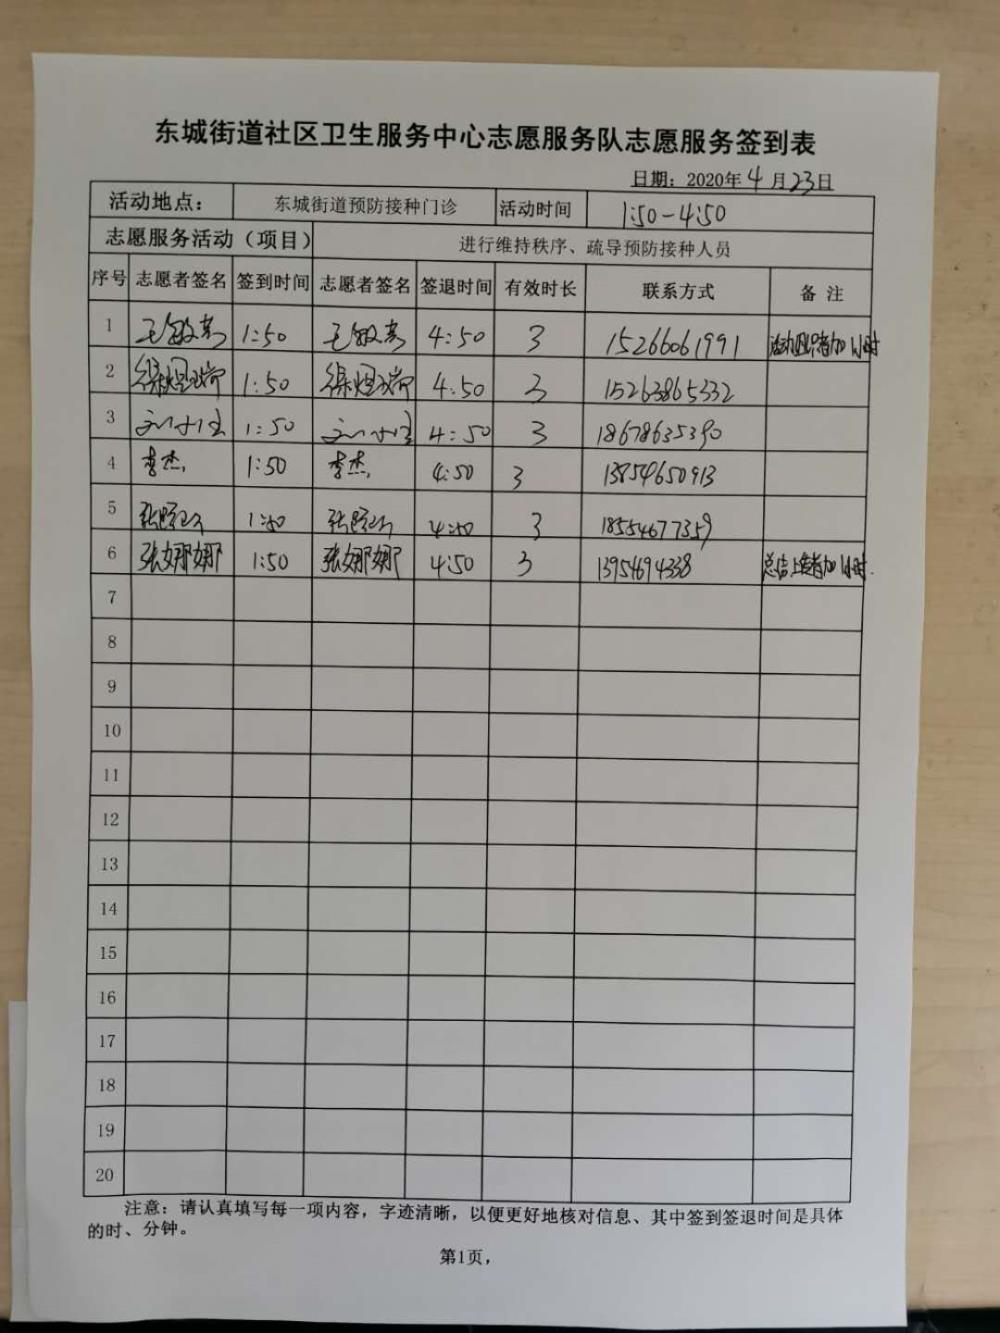 东城街道社区卫生服务中心志愿服务队志愿服务签到表
日期：2020年4月23日
活动地点： 东城街道预防接种门诊 活动时间 1:50-4:50
志愿服务活动（项目） 进行维持秩序、疏导预防接种人员
序号 志愿者签名 签到时间 志愿者签名 签退时间 有效时长 联系方式 备 注
1 王敏 1:50 王敏 4:50 3 15266061991 活动组织者加1小时
2 徐煜 1:50 徐煜 4:50 3 15263865332
3 刘小 1:50 刘小 4:50 3 18678635390
4 李杰 1:50 李杰 4:50 3 13854650913
5 张 1:50 张 4:50 3 18554677359
6 张娜娜 1:50 张娜娜 4:50 3 13954694338 总结上传者加1小时.
7
8
9
10
11
12
13
14
15
16
17
18
19
20
注意：请认真填写每一项内容，字迹清晰，以便更好地核对信息、其中签到签退时间是具体
的时、分钟。
第1页，